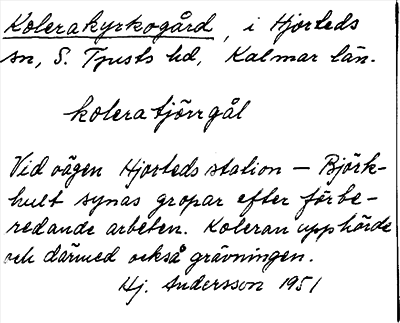 Kolerakyrkogård, i Hjorteds
sn, S. Tjusts hd, Kalmar län.
kolera tjörrgål
Vid vägen Hjorteds station – Björk-
hult synas gropar efter förbe-
redande arbeten. Koleran upphörde
och därmed också grävningen.
Hj. Andersson 1951